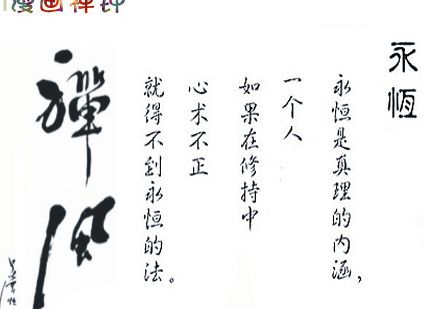 漫画禅评
永恒
永恒是真理的内涵，
一个人
如果在修持中
心术不正
就得不到永恒的法。
禅风